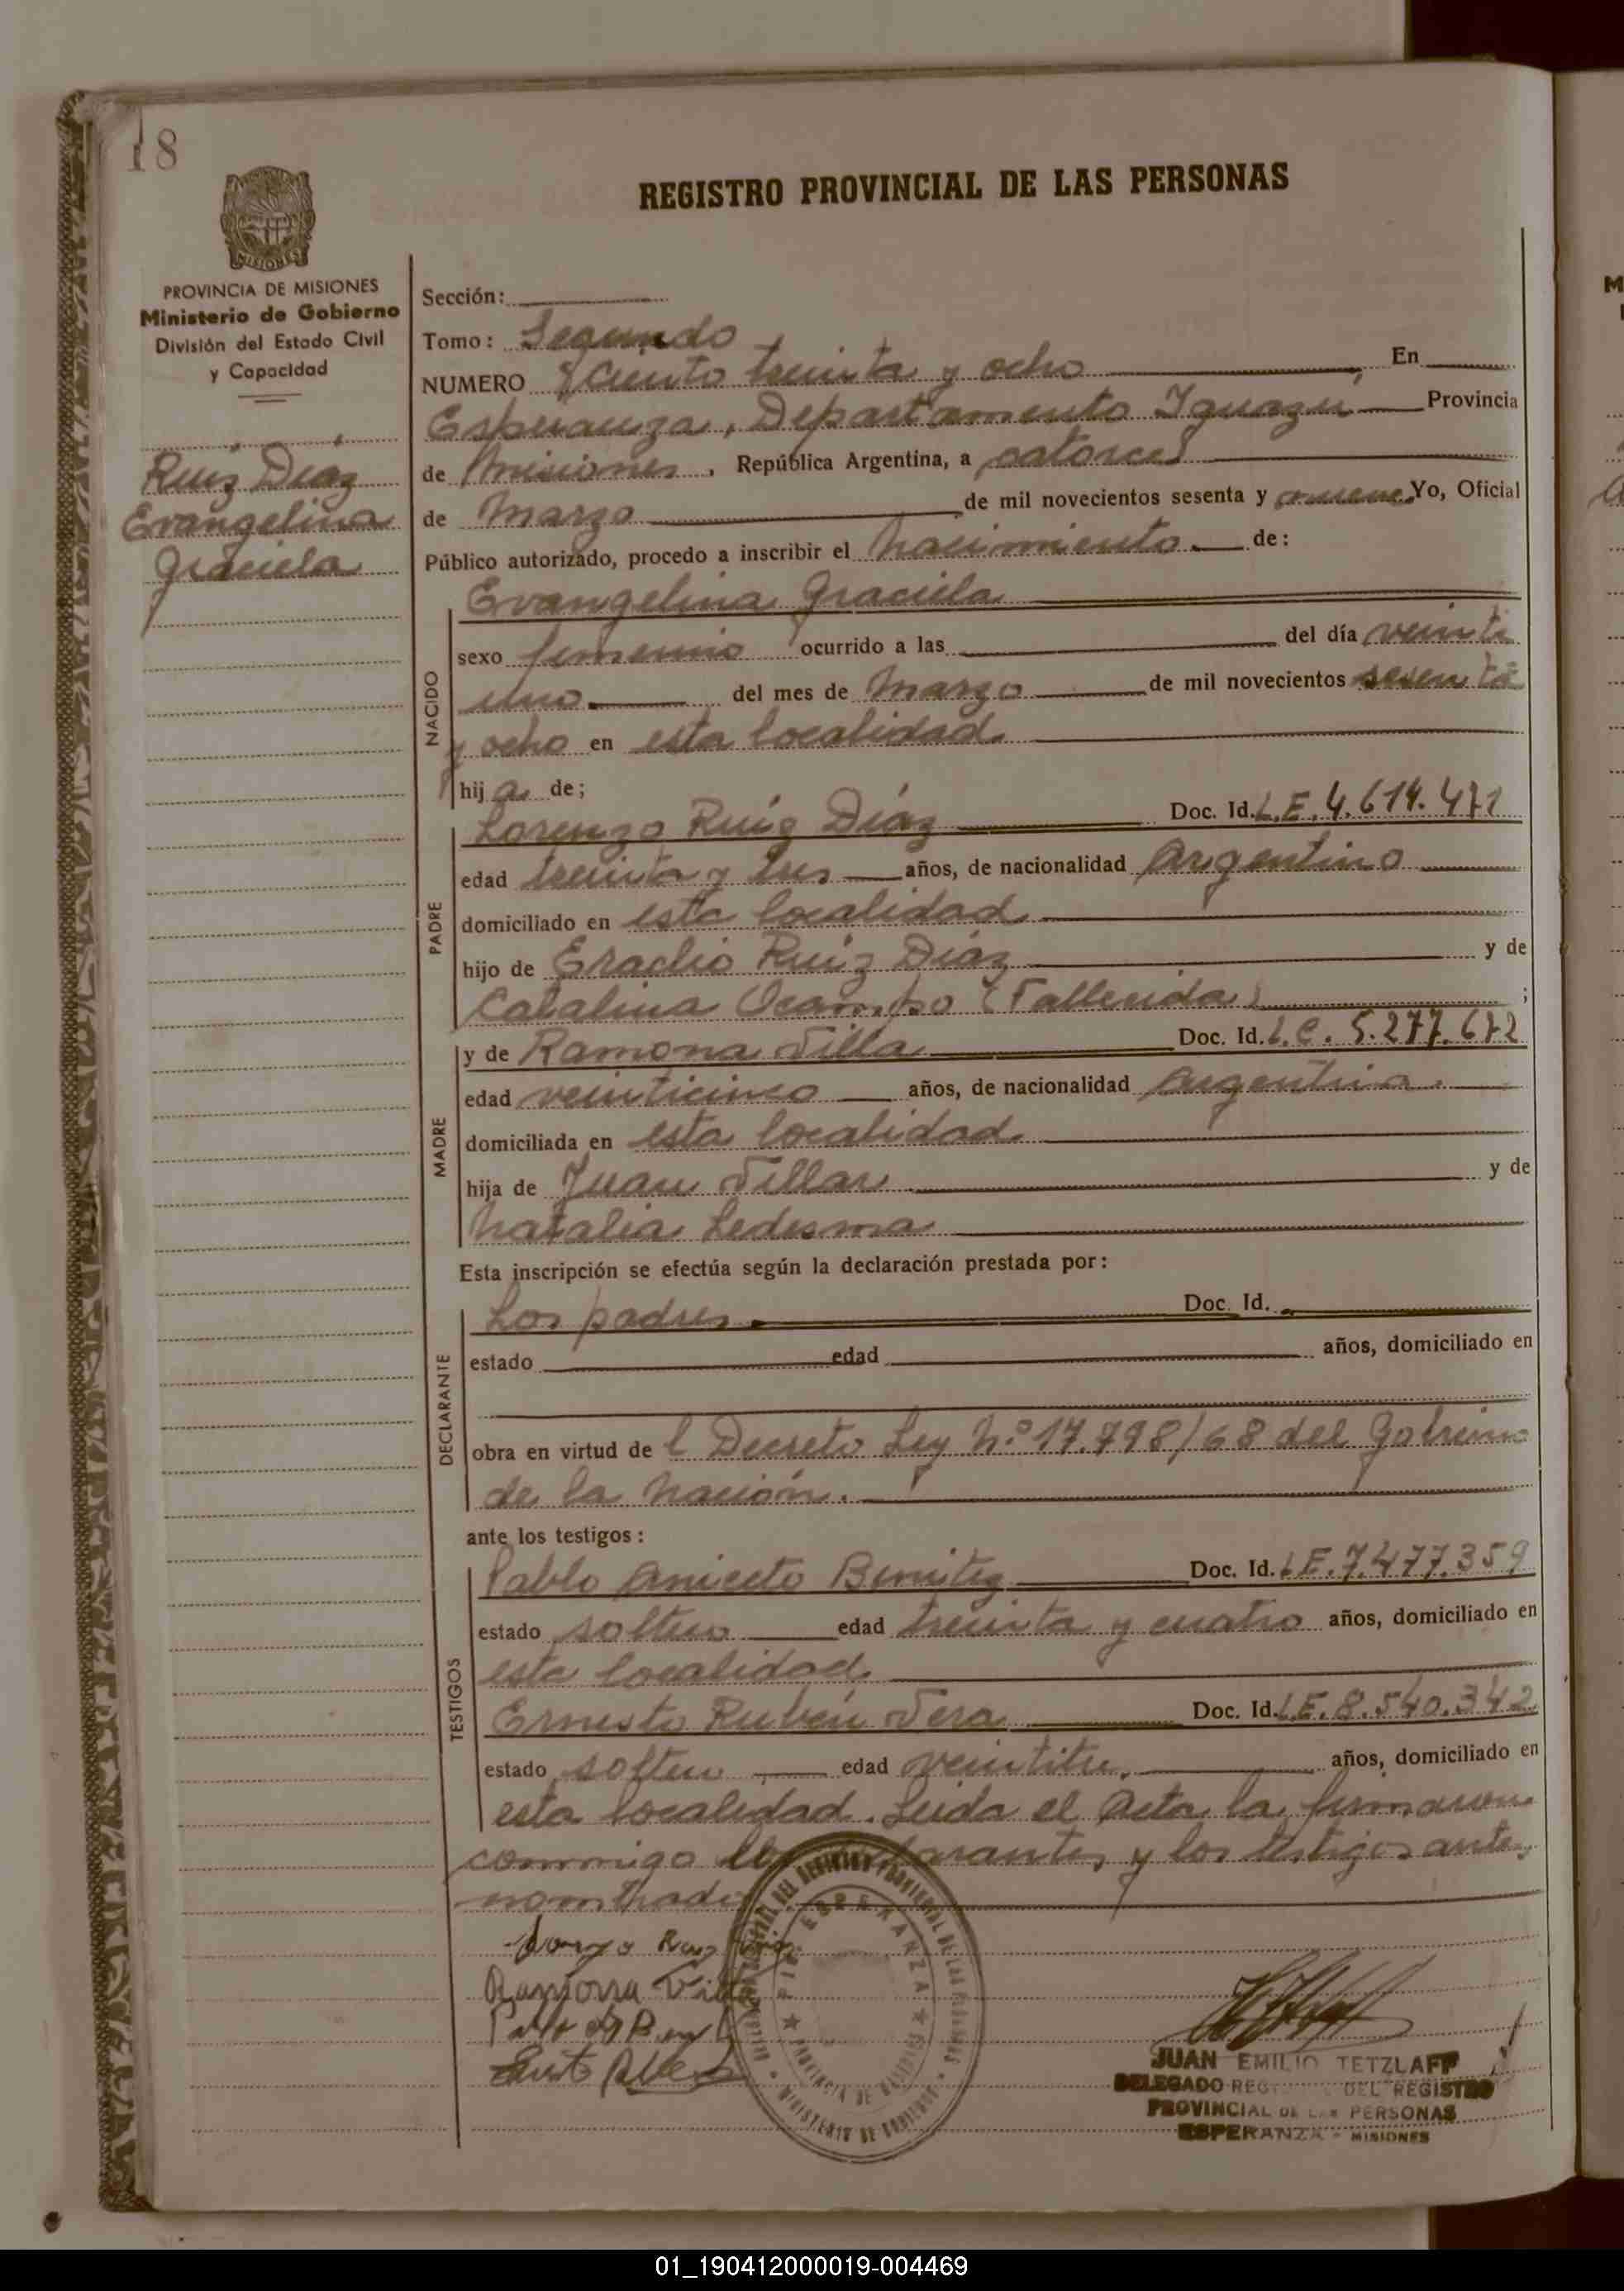 18
REGISTRO PROVINCIAL DE LAS PERSONAS
MISIONES
PROVINCIA DE MISIONES
Ministerio de Gobierno
División del Estado Civil
y Capacidad
Ruiz Diaz
Evangelina
Graciela
Sección:
Tomo: Segundo
NUMERO ciento treinta y ocho En
Esperanza, Departamento Iguazu Provincia
de Misiones, República Argentina, a catorce
de Marzo de mil novecientos sesenta y nueve Yo, Oficial
Público autorizado, procedo a inscribir el nacimiento de:
NACIDO
Evangelina Graciela
sexo femenino ocurrido a las del día veinti
uno del mes de Marzo de mil novecientos sesenta
y ocho en esta localidad.
hij a de;
PADRE
Lorenzo Ruiz Díaz Doc. Id. L.E. 4.614.471
edad treinta y tres años, de nacionalidad Argentino
domiciliado en esta localidad
hijo de Eraclio Ruiz Díaz y de
Catalina Ocampo (Fallecida) ;
MADRE
y de Ramona Villa Doc. Id. L.C. 5.277.672
edad veinticinco años, de nacionalidad argentina.
domiciliada en esta localidad.
hija de Juan Villar y de
Natalia Ledesma
Esta inscripción se efectúa según la declaración prestada por:
DECLARANTE
Los padres Doc. Id.
estado edad años, domiciliado en
obra en virtud de l Decreto Ley N.º 17.798/68 del Gobierno
de la Nación.
ante los testigos:
TESTIGOS
Pablo Aniceto Benitez Doc. Id. L.E. 7.477.359
estado soltero edad treinta y cuatro años, domiciliado en
esta localidad.
Ernesto Rubén Vera Doc. Id. L.E. 8.540.342
estado soltero edad veintitres años, domiciliado en
esta localidad. Leida el Acta la firmaron
conmigo los y los testigos antes
nombrados
Ramona Villa
ESPERANZA
PROVINCIA DE MISIONES
MINISTERIO DE GOBIERNO
JUAN EMILIO TETZLAFF
DELEGADO DEL REGISTRO
PROVINCIAL DE LAS PERSONAS
ESPERANZA - MISIONES
01_190412000019-004469